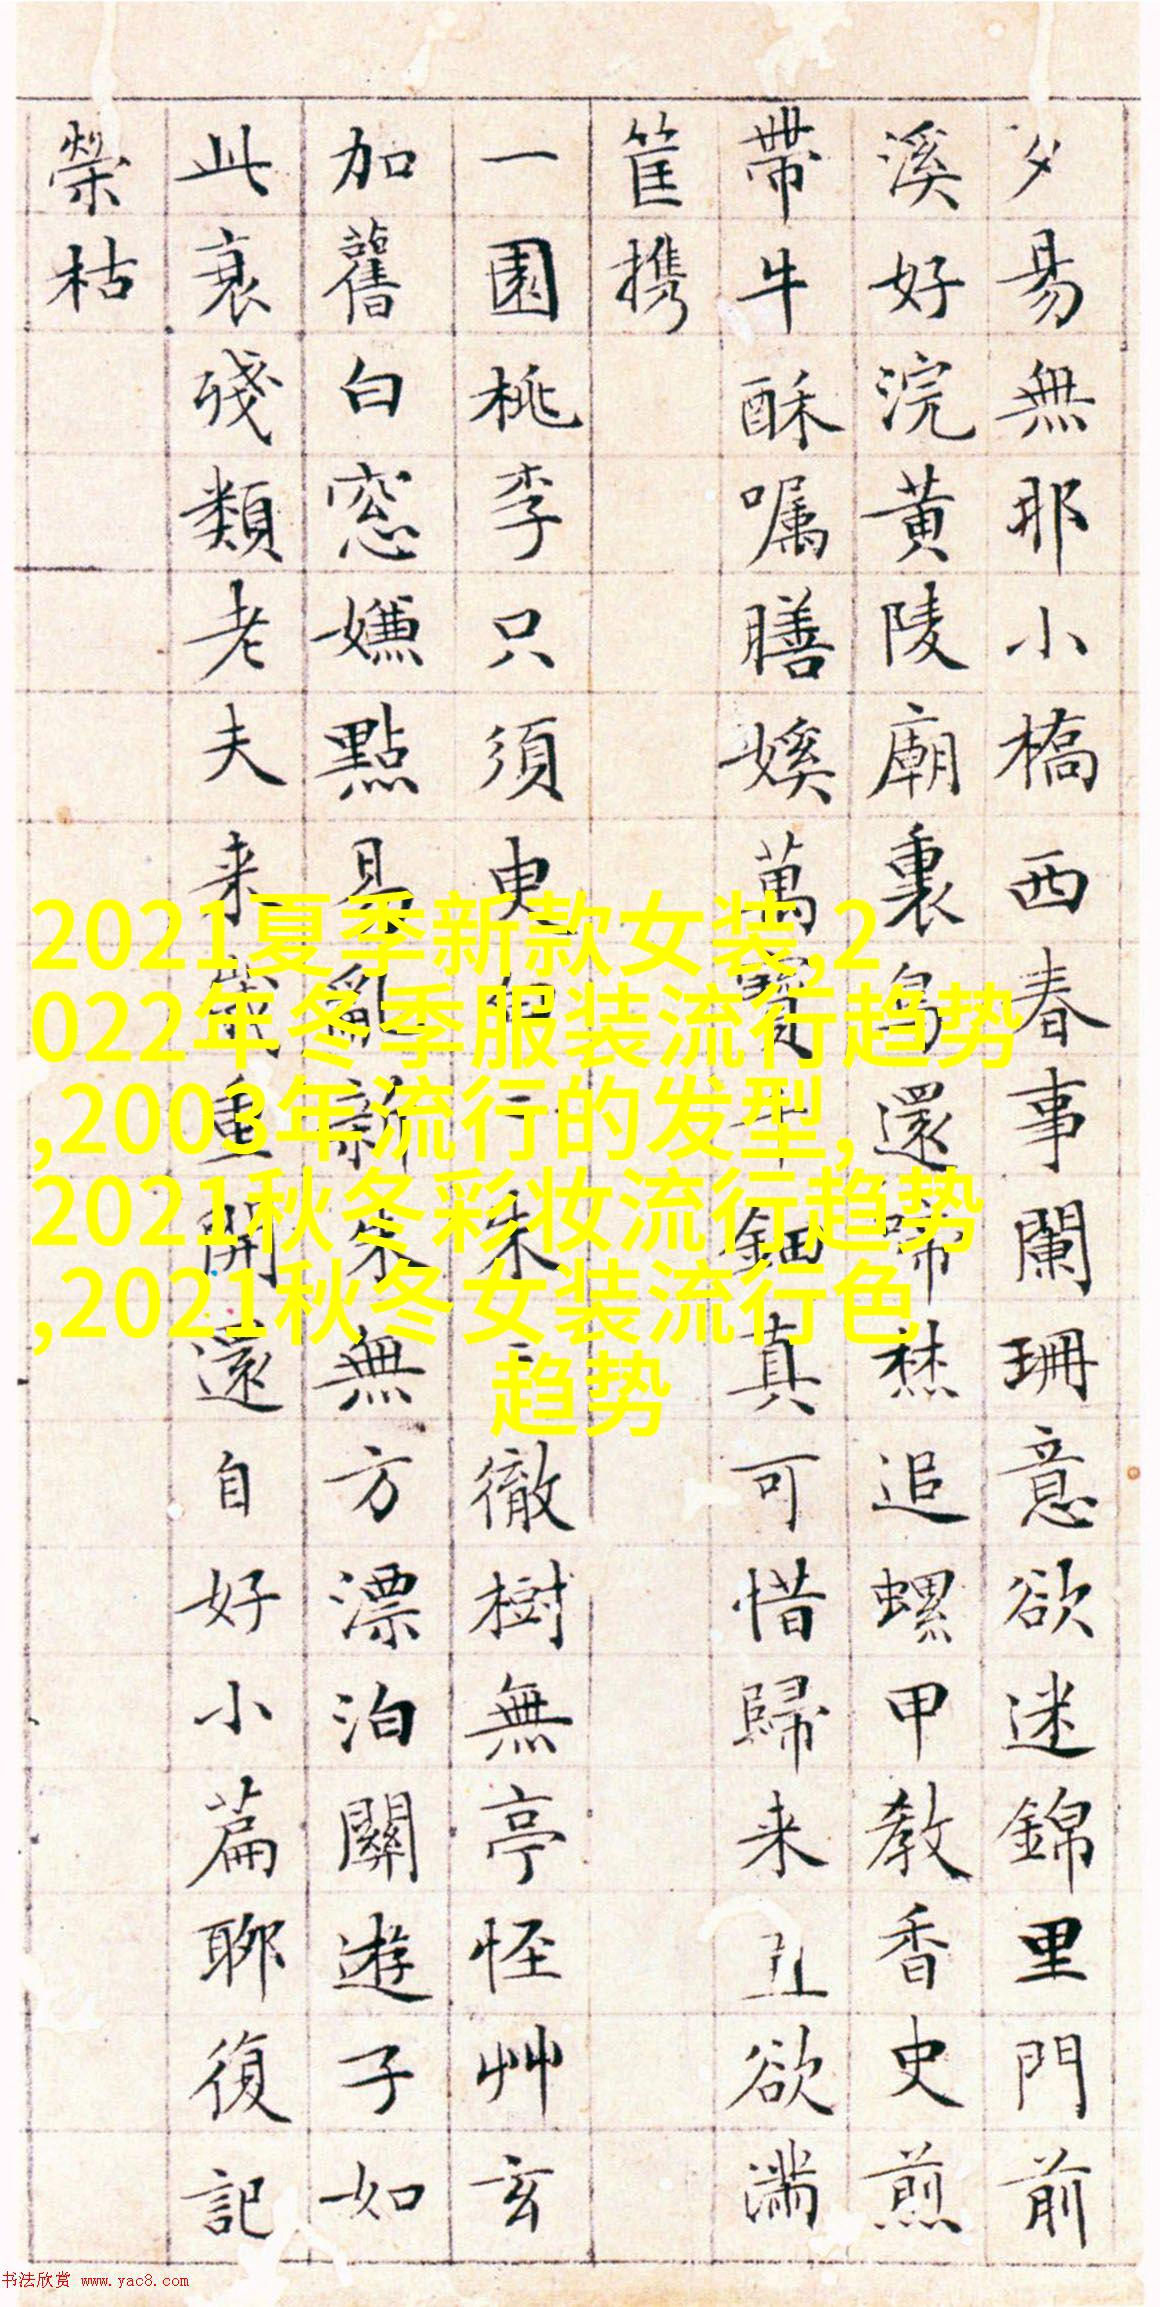 夕易無耶小橋西春事闌珊意欲迷錦里門前
溪好浣黄陵廟裏鳥還啼焚追螺甲教香史煎
帶牛酥嘱膳娭萬寶千鈿真可惜歸来欲满
筐携
一園桃李只須臾白二朱二徹樹無亭怪艸玄
加舊白窓嫌點易亂新朱無方漂泊關遊子如
此衰殘類老夫来歲重開還自好小篇聊復記
榮枯
2021夏季新款女装,2
022年冬季服装流行趋势
,2003年流行的发型,
2021秋冬彩妆流行趋势
,2021秋冬女装流行色
趋势
书法欣赏 www.yac8.com